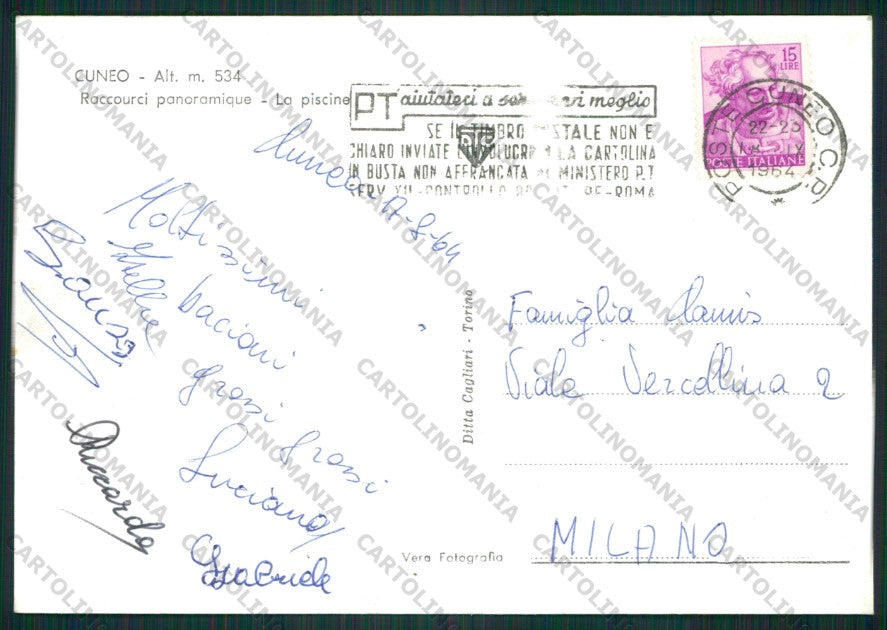 CUNEO - Alt. m. 534
Raccourci panoramique - La piscine
PT aiutateci a servirvi meglio
SE IL TIMBRO POSTALE NON E
CHIARO INVIATE L'INVOLUCRO O LA CARTOLINA
IN BUSTA NON AFFRANCATA AL MINISTERO P.T
SERV XII - CONTROLLO - ROMA
15
LIRE
POSTE ITALIANE
POSTE CUNEO C.P.
22-23
IX
1964
Cuneo 17-9-64
Moltissimi
bacioni
grossi grossi
Luciana
Stellina
Gabriele
Riccardo
Famiglia Ramis
Viale Vercellina 2
MILANO
Ditta Cagliari - Torino
Vera Fotografia
CARTOLINOMANIA